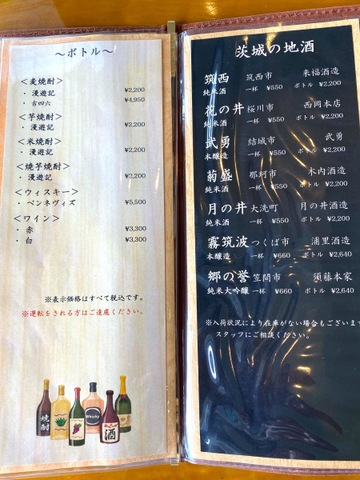 ～ボトル～
＜麦焼酎＞
・ 漫遊記 ¥2,200
・ 吉四六 ¥4,950
＜芋焼酎＞
・ 漫遊記 ¥2,200
＜米焼酎＞
・ 漫遊記 ¥2,200
＜焼芋焼酎＞
・ 漫遊記 ¥2,200
＜ウィスキー＞
・ ベンネヴィズ ¥5,500
＜ワイン＞
・ 赤 ¥3,300
・ 白 ¥3,300
※表示価格はすべて税込です。
※運転をされる方はご遠慮ください。
焼酎
Whisky
酒
茨城の地酒
筑西 筑西市 来福酒造
純米酒 一杯 ¥550 ボトル ¥2,200
花の井 桜川市 西岡本店
純米酒 一杯 ¥550 ボトル ¥2,200
武勇 結城市 武勇
本醸造 一杯 ¥550 ボトル ¥2,200
菊盛 那珂市 木内酒造
純米酒 一杯 ¥550 ボトル ¥2,200
月の井 大洗町 月の井酒造
純米酒 一杯 ¥550 ボトル ¥2,200
霧筑波 つくば市 浦里酒造
本醸造 一杯 ¥660 ボトル ¥2,640
郷の誉 笠間市 須藤本家
純米大吟醸 一杯 ¥660 ボトル ¥2,640
※入荷状況により在庫がない場合もございます。
スタッフにご相談ください。